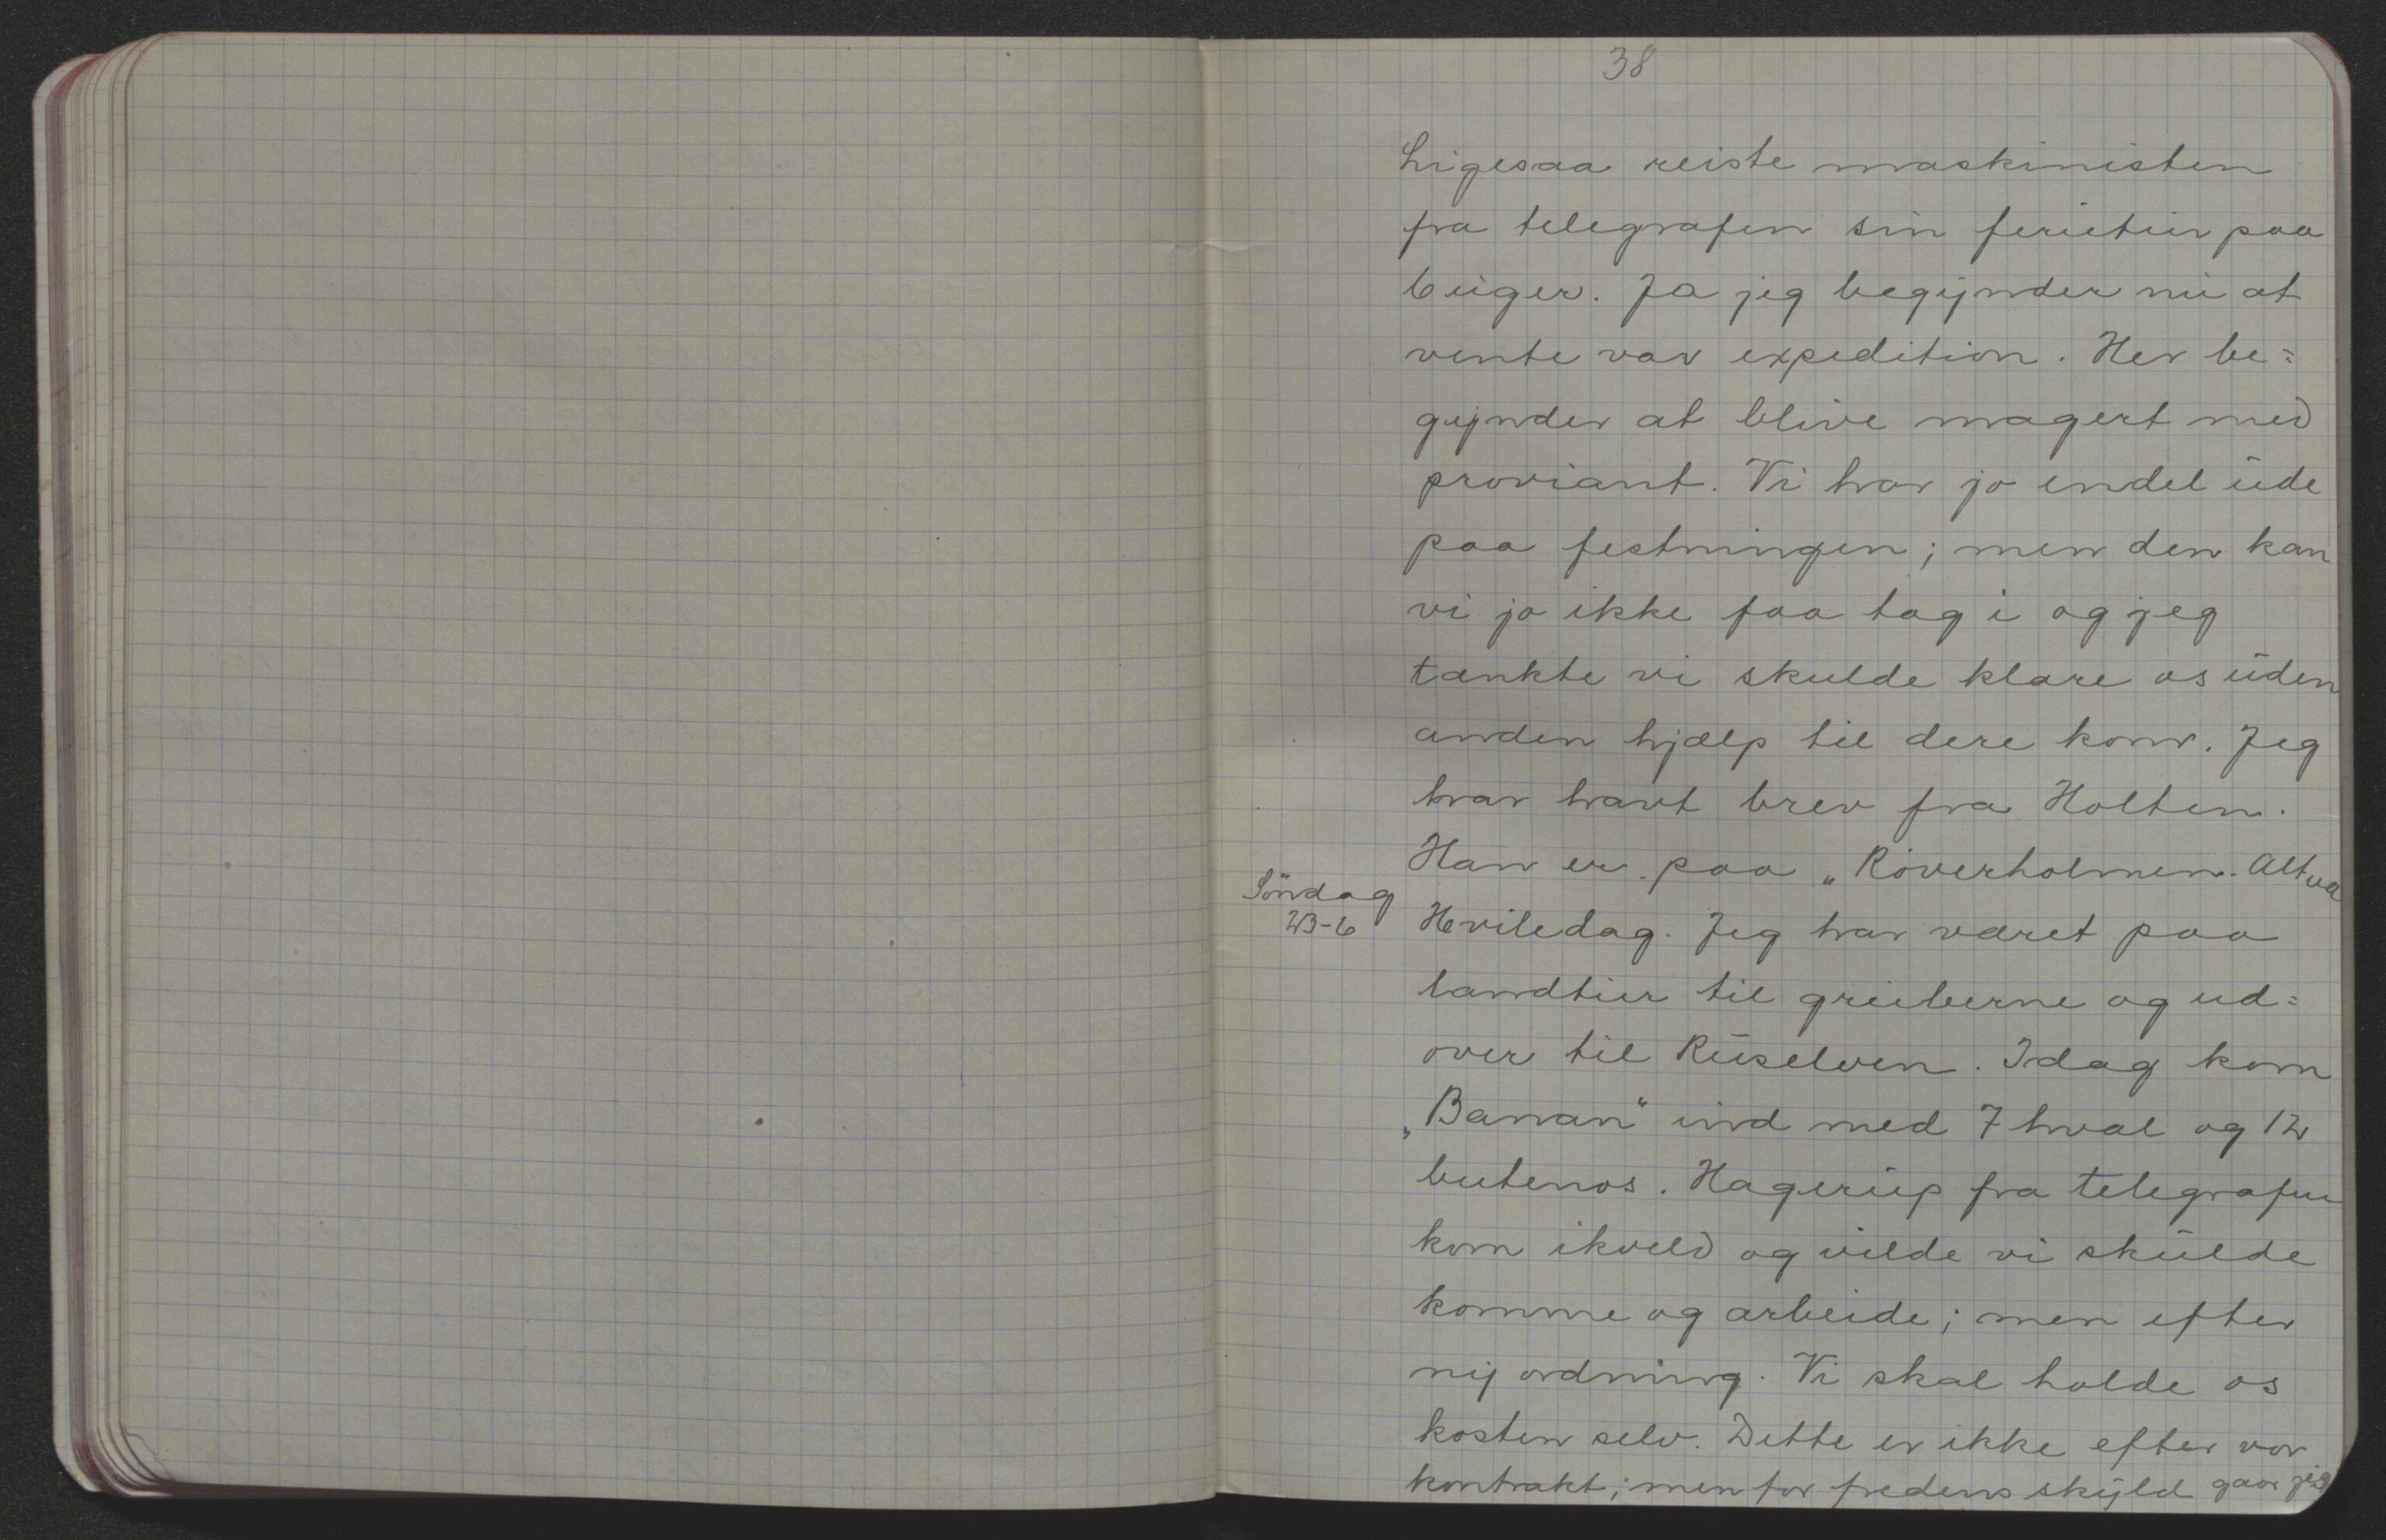 38
Ligesaa reiste maskinisten
fra telegrafen sin ferietur paa
6 uger. Ja jeg begynder nu at
vente vor expedition. Her be=
gynder at blive magert med
proviant. Vi har jo endel ude
paa festningen; men den kan
vi jo ikke faa tag i og jeg
tænkte vi skulde klare os uden
anden hjælp til dere kom. Jeg
har havt brev fra Holten.
Han er paa „Röverholmen. Alt vel
Söndag
23-6
Hviledag. Jeg har været paa
landtur til gruberne og ud=
over til Ruselven. Idag kom
„Banan“ ind med 7 hval og 12
butenos. Hagerup fra telegrafen
kom ikveld og vilde vi skulde
komme og arbeide; men efter
ny ordning. Vi skal holde os
kosten selv. Dette er ikke efter vor
kontrakt; men for fredens skyld gaar jeg